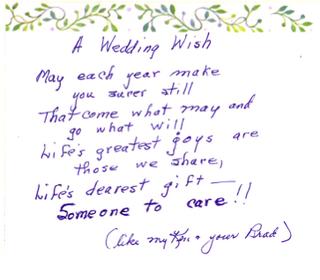 A Wedding Wish
May each year make
you surer still
That come what may and
go what will
Life's greatest joys are
those we share,
Life's dearest gift —
Someone to care!!
(like my Ken & your Brad)